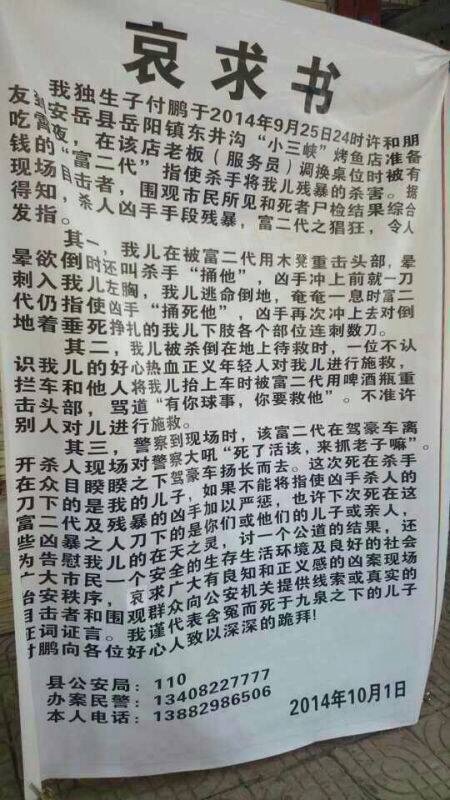 哀求书
我独生子付鹏于2014年9月25日24时许和朋
友到安岳县岳阳镇东井沟“小三峡”烤鱼店准备
吃宵夜，在该店老板（服务员）调换桌位时被有
钱的“富二代”指使杀手将我儿残暴的杀害。据
现场目击者，围观市民所见和死者尸检结果综合
得知，杀人凶手手段残暴，富二代之猖狂，令人
发指。
其一，我儿在被富二代用木凳重击头部，晕
晕欲倒时还叫杀手“捅他”，凶手冲上前就一刀
刺入我儿左胸，我儿逃命倒地，奄奄一息时富二
代仍指使凶手“捅死他”，凶手再次冲上去对倒
地着垂死挣扎的我儿下肢各个部位连刺数刀。
其二，我儿被杀倒在地上待救时，一位不认
识我儿的好心热血正义年轻人对我儿进行施救，
拦车和他人将我儿抬上车时被富二代用啤酒瓶重
击头部，骂道“有你球事，你要救他”。不准许
别人对儿进行施救。
其三，警察到现场时，该富二代在驾豪车离
开杀人现场对警察大吼“死了活该，来抓老子嘛”。
在众目睽睽之下驾豪车扬长而去。这次死在杀手
刀下的是我的儿子，如果不能将指使手杀人的
富二代及残暴的凶手加以严惩，也许下次死在这
些凶暴之人刀下的是你们或他们的儿子或亲人，
为告慰我儿的在天之灵，讨一个公道的结果，还
广大市民一个安全的生存生活环境及良好的社会
治安秩序，哀求广大有良知和正义感的凶案现场
目击者和围观群众向公安机关提供线索或真实的
证词证言。我谨代表含冤而死于九泉之下的儿子
付鹏向各位好心人致以深深的跪拜！
县公安局：110
办案民警：13408227777
本人电话：13882986506
2014年10月1日